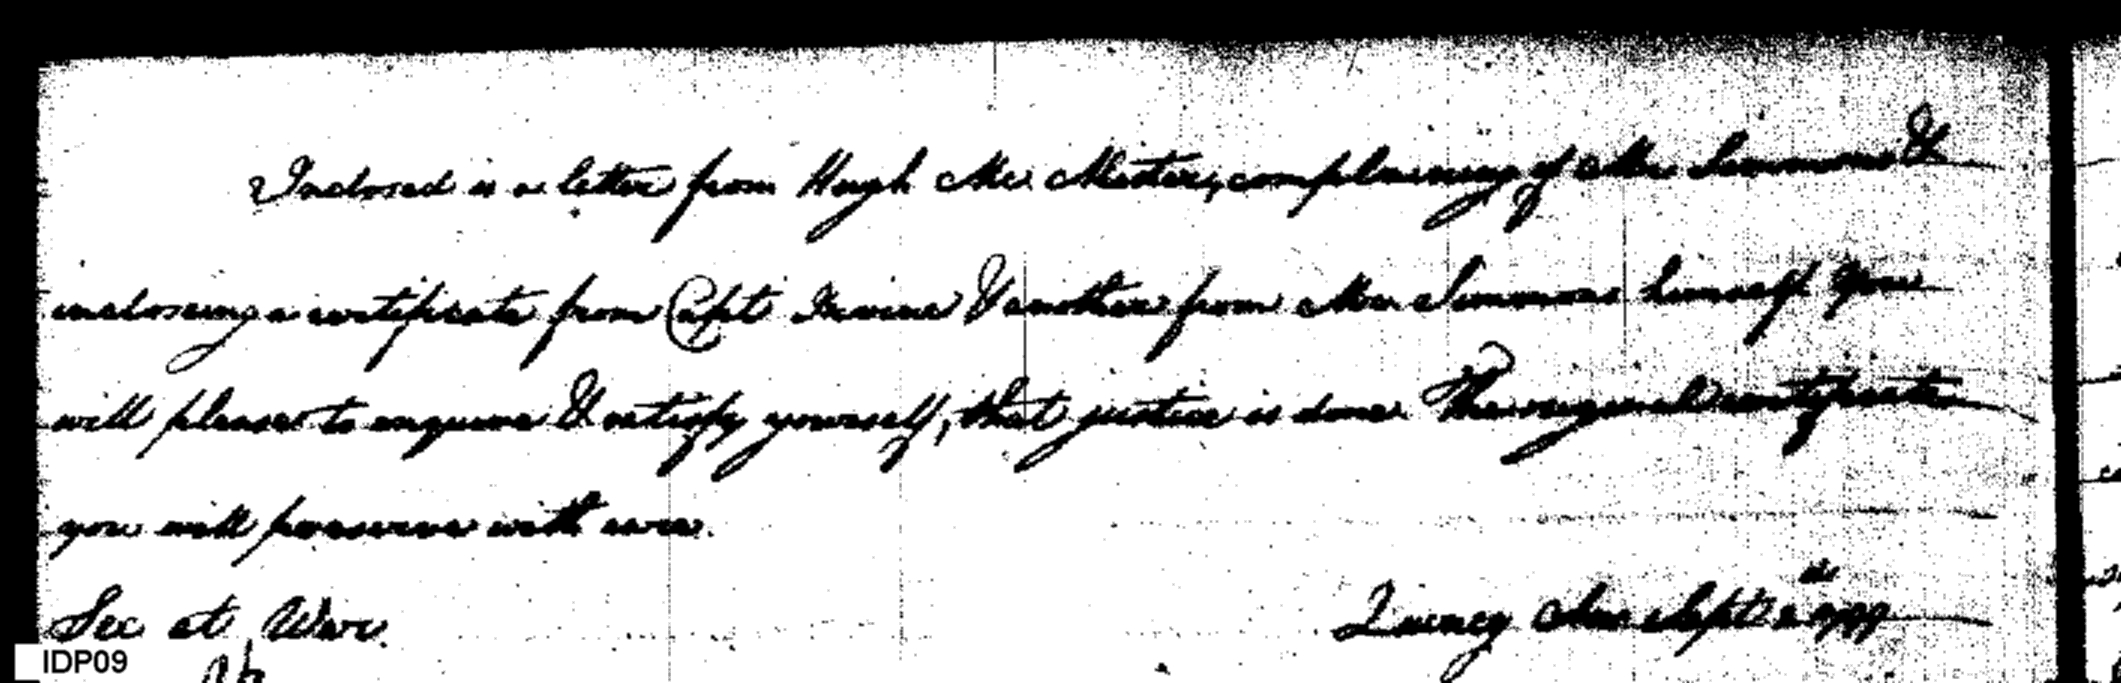 Inclosed is a letter from Hugh Mc. Master, complaining of Mr Simmons &
inclosing a certificate from Capt Irvine & another from Mr Simmons himself. You
will please to enquire & satisfy yourself, that justice is done. The original certificate
you will preserve with care.
Sec at War.
Quincy Sept 1799
IDP09